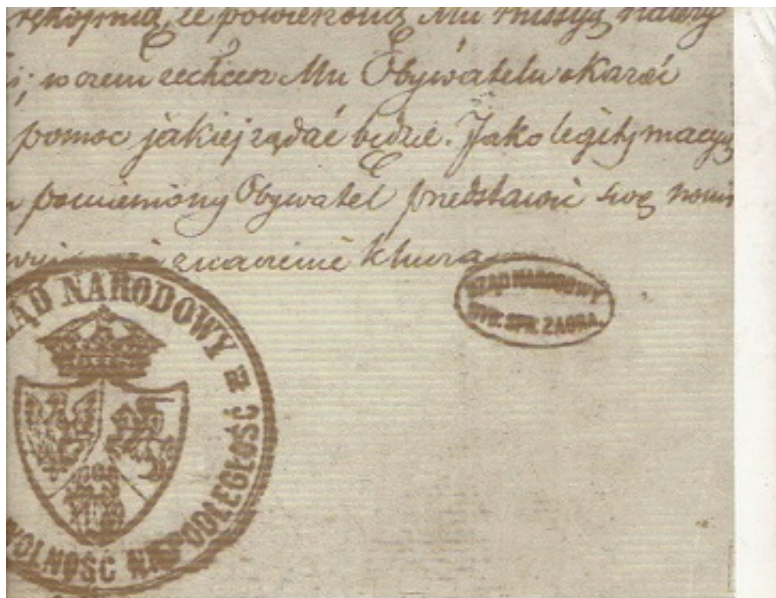 rękojmią, że powierzoną Mu missyą należy
i; w czem zechcesz Mu Obywatelu okazać
pomoc jakiej żądać będzie. Jako legitymacyą
pomieniony Obywatel przedstawić swą
znaczenie
RZĄD NARODOWY
WYD. SPR. ZAGRA.
RZĄD NARODOWY
WOLNOŚĆ NIEPODLEGŁOŚĆ